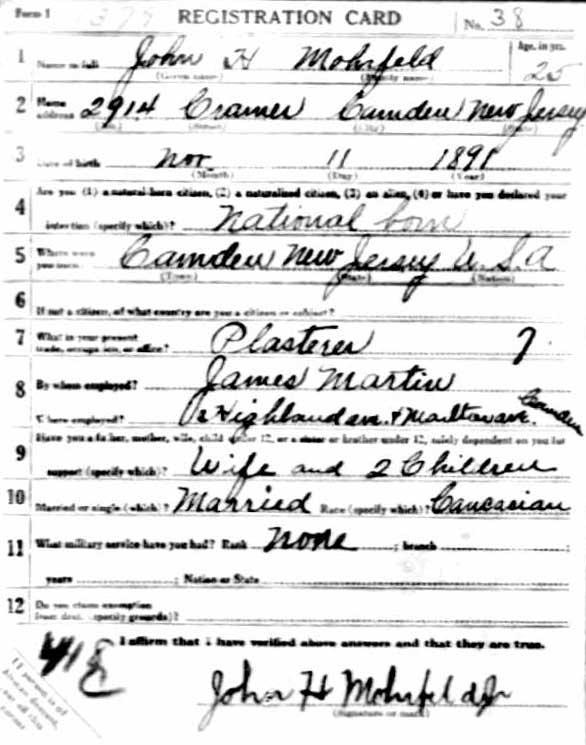 Form 1 1377 REGISTRATION CARD No. 38
1 Name in full John H Mohrfeld Age, in yrs. 25
(Given name) (Family name)
2 Home address 2914 Cramer Camden New Jersey
(No.) (Street) (City) (State)
3 Date of birth Nov. 11 1891
(Month) (Day) (Year)
4 Are you (1) a natural-born citizen, (2) a naturalized citizen, (3) an alien, (4) or have you declared your
intention (specify which)? National born
5 Where were you born? Camden New Jersey U.S.A
(Town) (State) (Nation)
6 If not a citizen, of what country are you a citizen or subject?
7 What is your present trade, occupation, or office? Plasterer 7
8 By whom employed? James Martin
Where employed? Highland av. + Camden
9 Have you a father, mother, wife, child under 12, or a sister or brother under 12, solely dependent on you for
support (specify which)? Wife and 2 Children
10 Married or single (which)? Married Race (specify which)? Caucasian
11 What military service have you had? Rank None ; branch ;
years ; Nation or State
12 Do you claim exemption from draft (specify grounds)?
I affirm that I have verified above answers and that they are true.
John H Mohrfeld Jr
(Signature or mark)
If person is of
African descent,
tear off this
corner